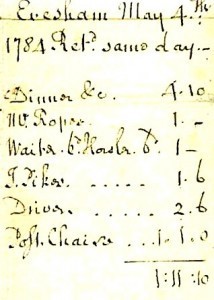 Evesham May 4.th
1784 Ret.d same day.—
Dinner &c. 4.10
Mr. Roper 1.—
Waiter 6.d Hosler 6.d 1—
T. Pikes ..... 1.6
Driver ..... 2.6
Post Chaise ...1.1.0
1:11:10